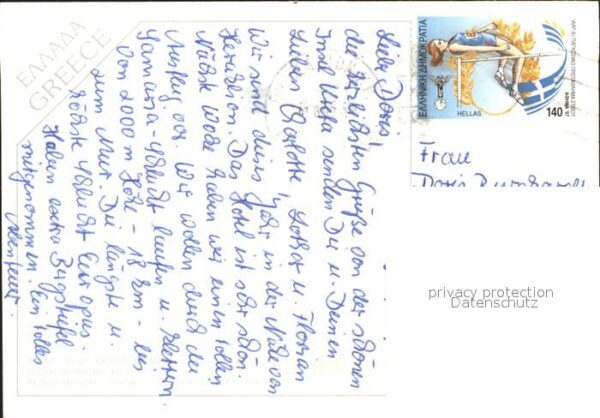 ΕΛΛΑΔΑ
GREECE
Liebe Doris!
die herzlichsten Grüße von der schönen
Insel Kreta senden Dir u. Deinen
Lieben Charlotte, Lothar u. Florian
Wir sind dieses Jahr in der Nähe von
Heraklion. Das Hotel ist sehr schön.
Nächste Woche haben wir einen tollen
Ausflug vor. Wir wollen durch die
Samaria-Schlucht laufen u. klettern.
von 2000 m Höhe - 18 km - bis
zum Meer. Die längste u.
größte Schlucht Europas.
Haben extra Bergstiefel
mitgenommen. Ein tolles
Abenteuer.
ΕΛΛΗΝΙΚΗ ΔΗΜΟΚΡΑΤΙΑ
HELLAS
140
ΑΘΗΝΑ 97
Frau
Doris
privacy protection
Datenschutz